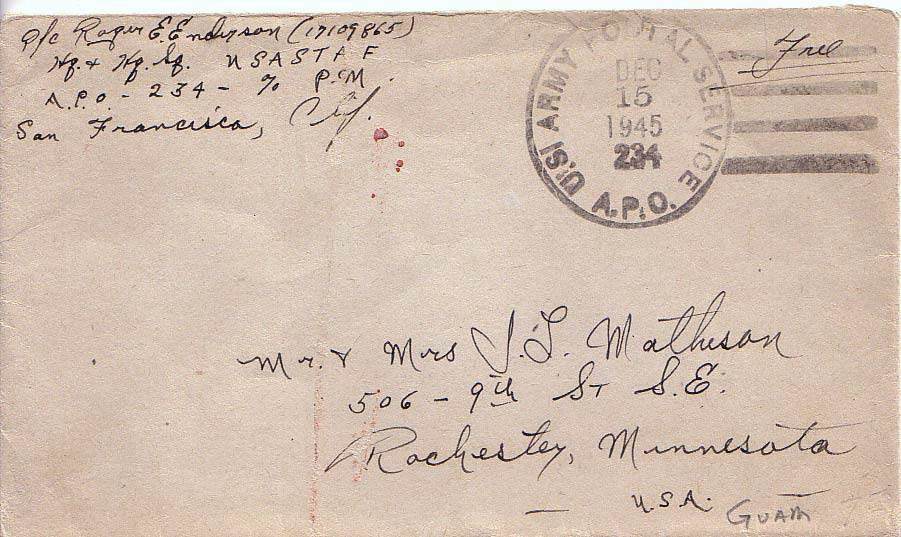 P/c Roger E. Enderson (17109865)
Hq. & Hq. Sq. USASTAF
A.P.O. - 234 - % P.M.
San Francisco, Clf.
U.S. ARMY POSTAL SERVICE
A.P.O.
DEC
15
1945
234
Free
Mr. & Mrs J. L. Matheson
506 - 9th St S.E.
Rochester, Minnesota
U.S.A.
GUAM